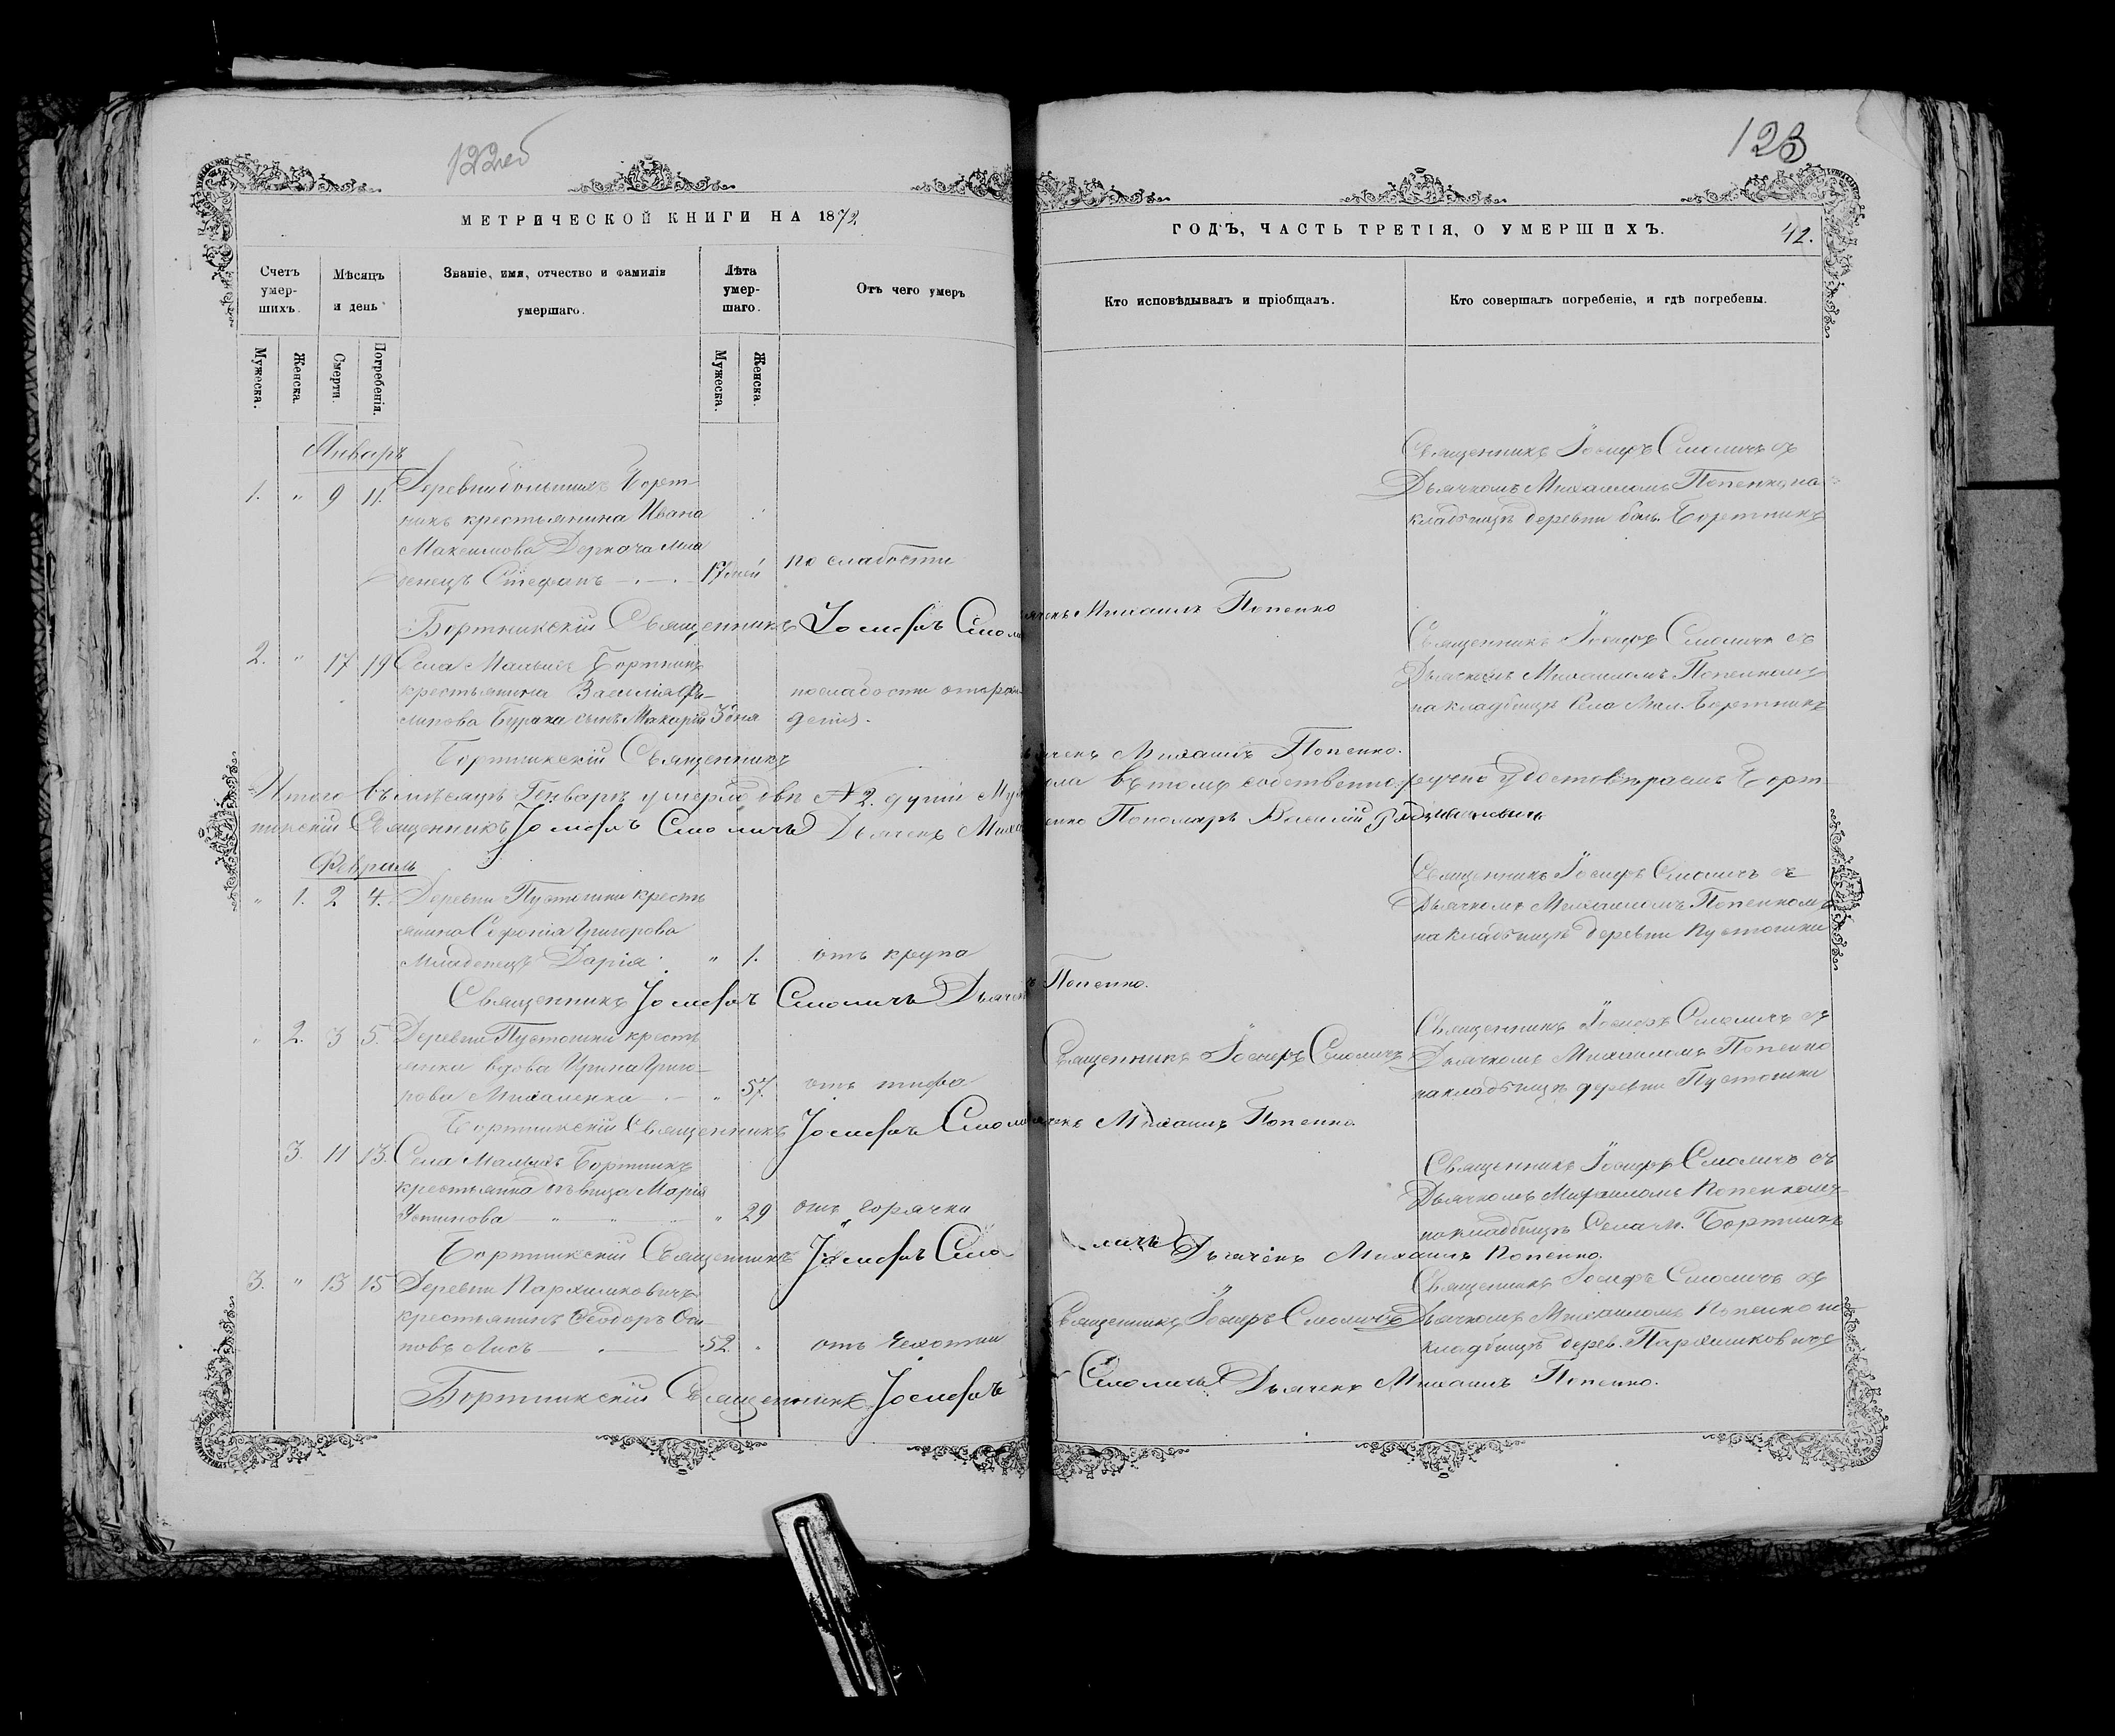 122об
МЕТРИЧЕСКОЙ КНИГИ НА 1872
Счетъ умер-шихъ.
Мѣсяцъ и день
Званіе, имя, отчество и фамилія умершаго.
Лѣта умер-шаго.
Отъ чего умеръ
Мужеска.
Женска.
Смерти.
Погребенія.
Мужеска.
Женска.
Январь
1. " 9 11. Деревни большихъ Борт-
никъ крестьянина Ивана
Максимова Деркача мла
денецъ Стефанъ 17 дней по слабости
Бортникскій Священникъ Іосифъ Смоли
2. " 17 19 Села Малыхъ Бортникъ
крестьянина Василія Фи-
липова Бурака сынъ Макарій 3 дня по слабости отъ рож-
денія.
Бортникскій Священникъ
Итого въ мѣсяцѣ Генварѣ умерло двѣ №2. души Му
никскій Священникъ Іосифъ Смоличъ Дьячекъ Миха
Февраль
" 1. 2 4. Деревни Пустошки кресть
янина Софонія Григорова
Младенецъ Дарія " 1. отъ крупа
Священникъ Іосифъ Смоличъ Дьячек
" 2. 3 5. Деревни Пустошки кресть
янка вдова Ирина Григо-
рова Михаленка " 57. отъ тифа
Бортникскій Священникъ Іосифъ Смоли
3. 11 13. Села Малыхъ Бортникъ
крестьянка дѣвица Марія
Устинова " 29 отъ горячки
Бортникскій Священникъ Іосифъ Смо
3. " 13 15 Деревни Пархимковичъ
крестьянинъ Ѳеодоръ Оси-
повъ Лисъ 52. " отъ чехотки
Бортникскій Священникъ Іосифъ
123
ГОДЪ, ЧАСТЬ ТРЕТІЯ, О УМЕРШИХЪ.
42.
Кто исповѣдывалъ и пріобщалъ.
Кто совершалъ погребеніе, и гдѣ погребены.
Священникъ Іосифъ Смоличъ съ
Дьячкомъ Михаиломъ Попенко на
кладбищѣ деревни бол. Бортникъ
ячекъ Михаилъ Попенко
Священникъ Іосифъ Смоличъ съ
Дьячкомъ Михаиломъ Попенкомъ
на кладбищѣ Села Мал. Бортникъ
ячекъ Михаилъ Попенко.
пола въ томъ собственноручно удостовѣряемъ Борт-
енко Пономарь Василій
Священникъ Іосифъ Смоличъ съ
Дьячкомъ Михаиломъ Попенкомъ
на кладбищѣ деревни Пустошки
ъ Попенко.
Священникъ Іосифъ Смоличъ съ
Священникъ Іосифъ Смоличъ Дьячкомъ Михаиломъ Попенко
на кладбищѣ деревни Пустошки
ячекъ Михаилъ Попенко
Священникъ Іосифъ Смоличъ съ
Дьячкомъ Михаиломъ Попенкомъ
на кладбищѣ Села М. Бортникъ
личъ Дьячекъ Михаилъ Попенко.
Священникъ Іосифъ Смоличъ съ
Священникъ Іосифъ Смоличъ Дьячкомъ Михаиломъ Попенко на
кладбищѣ дерев. Пархимковичъ
Смоличъ Дьячекъ Михаилъ Попенко.